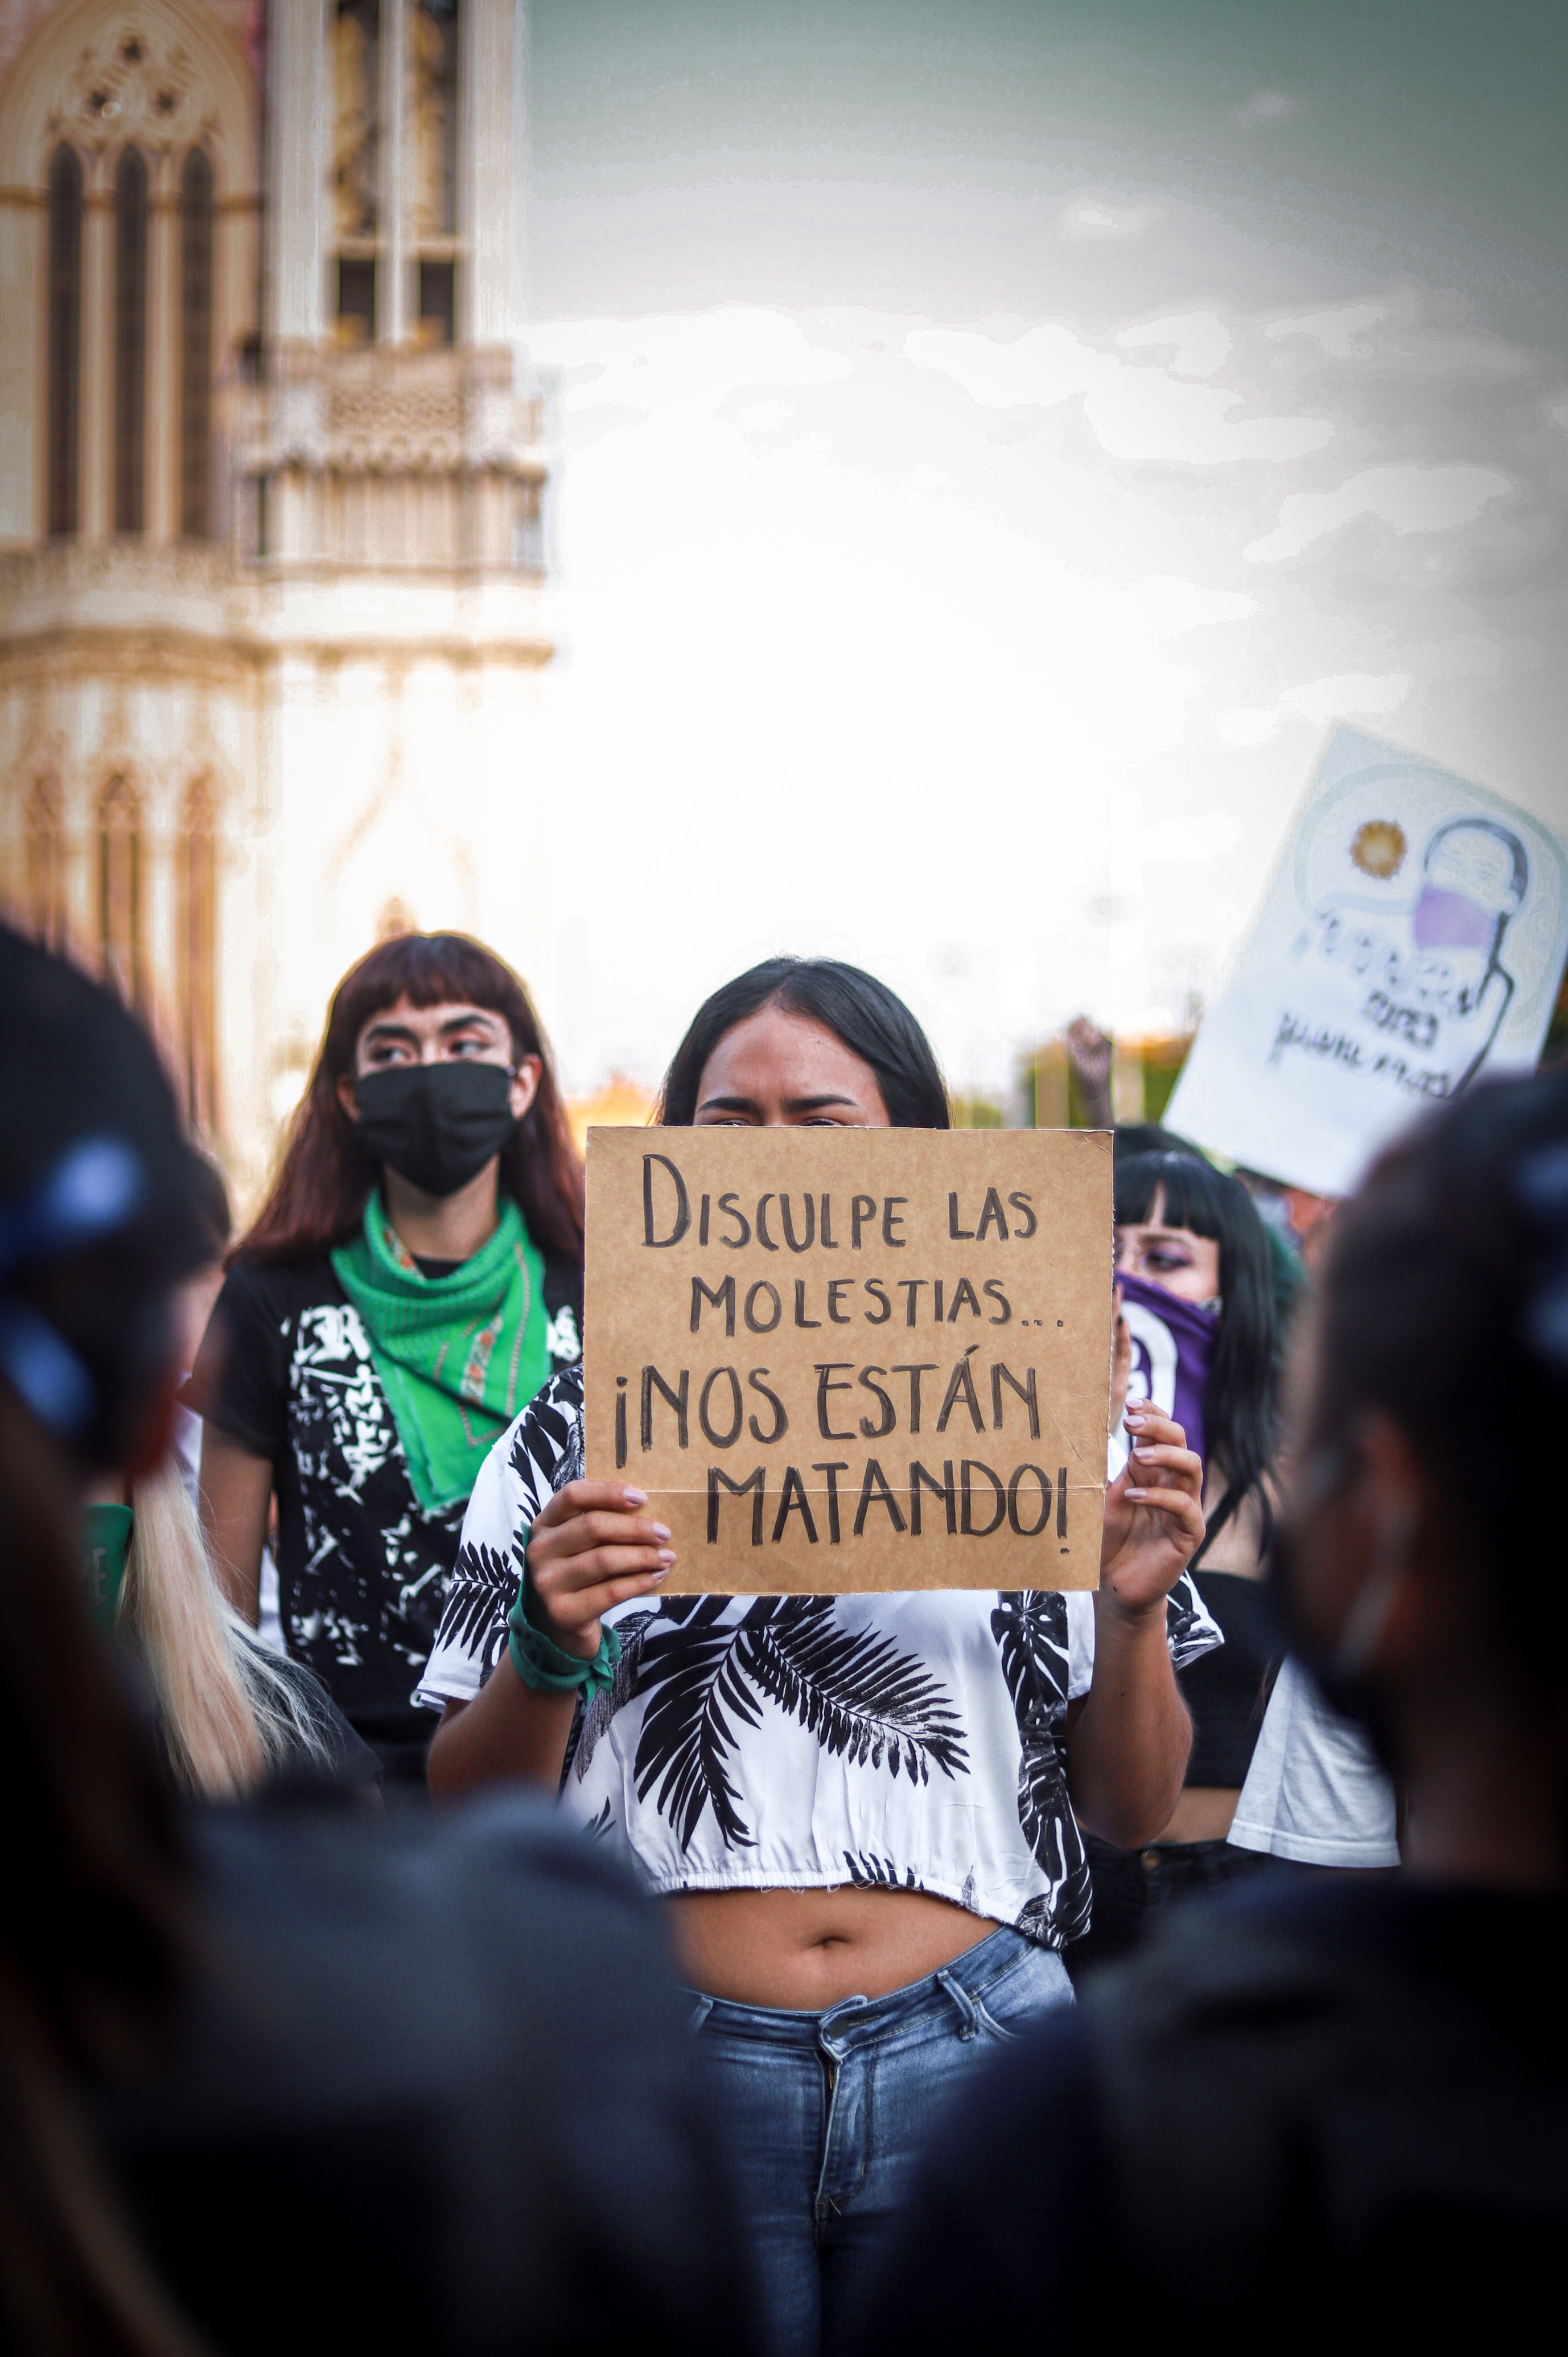 DISCULPE LAS
MOLESTIAS...
¡NOS ESTÁN
MATANDO!